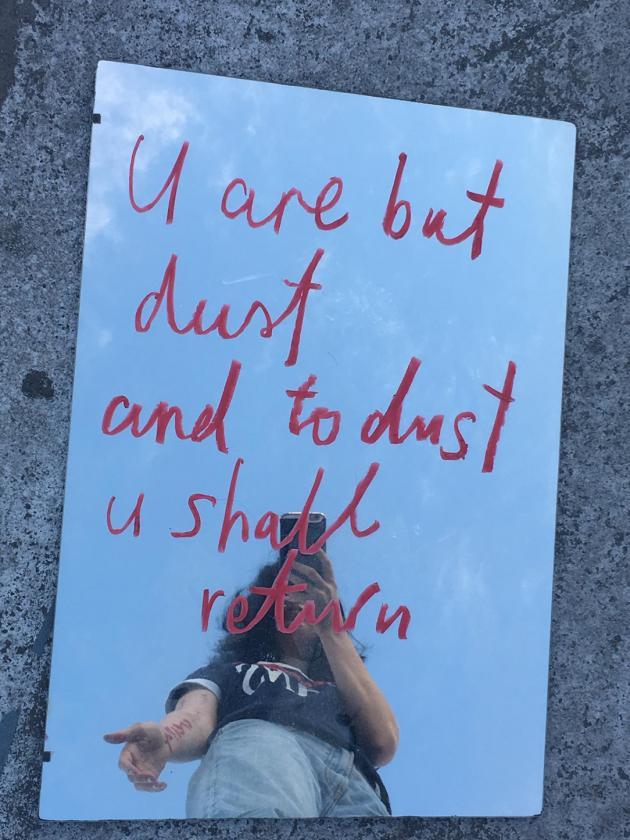 U are but
dust
and to dust
u shall
return